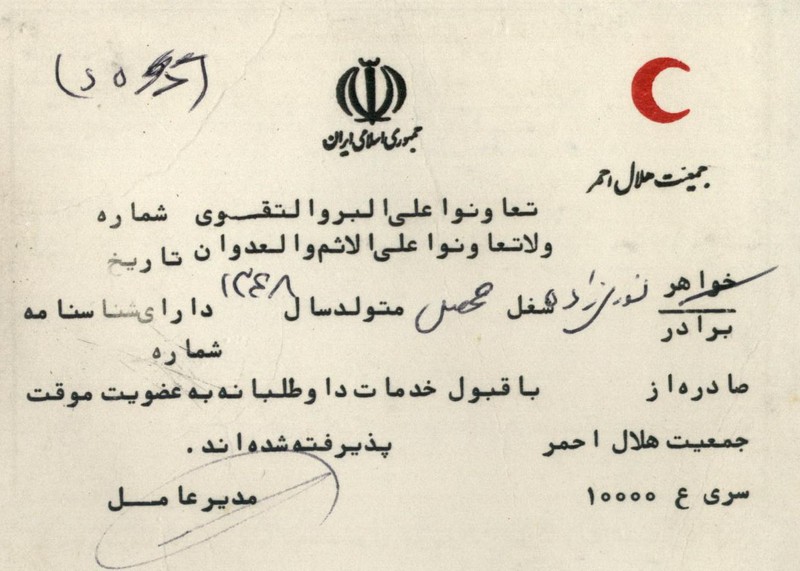 جمهوری اسلامی ایران
جمعیت هلال احمر
تعاونوا علی البر والتقوی شماره
ولاتعاونوا علی الاثم والعدوان تاریخ
خواهر نوری زاده شغل محصل متولد سال ۱۳۴۸ دارای شناسنامه
برادر
شماره
صادره از با قبول خدمات داوطلبانه به عضویت موقت
جمعیت هلال احمر پذیرفته شده اند .
سری ع ۱۰۰۰۰ مدیرعامل